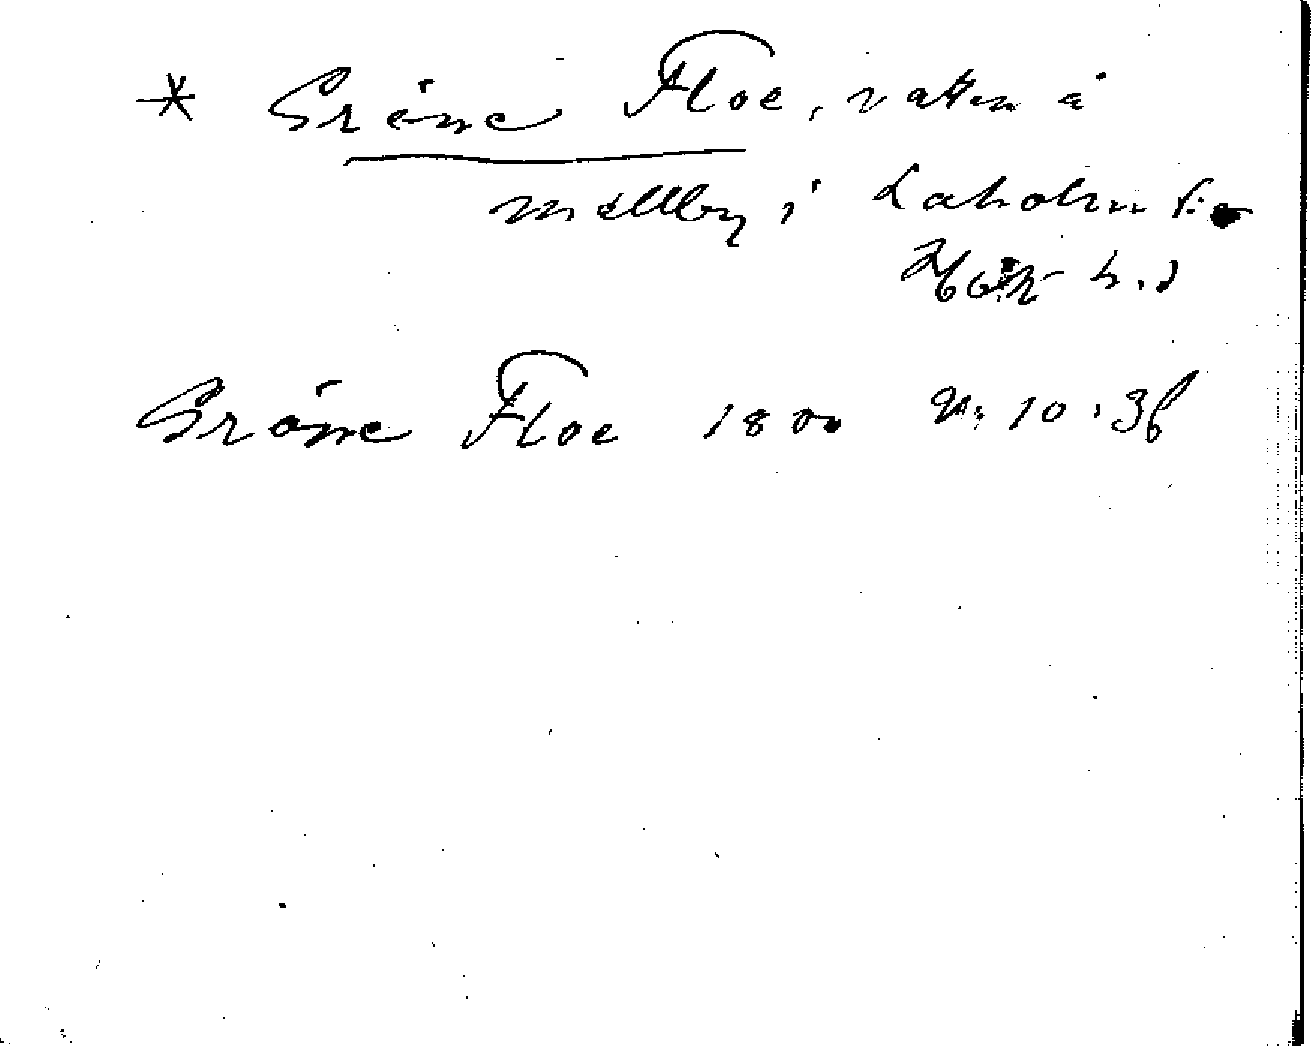 * Gröne Floe, vatten å
mellby i Laholm s:n
Hök h.d
Gröne Floe 1800 N: 10:36